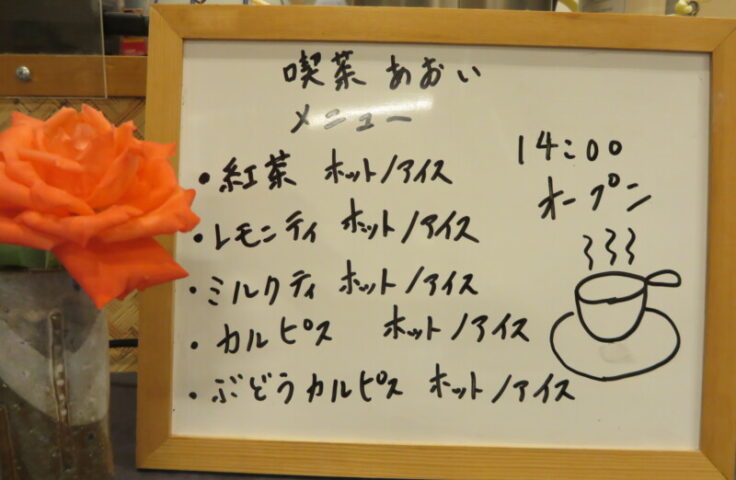 喫茶 あおい
メニュー
・紅茶 ホット/アイス
・レモンティ ホット/アイス
・ミルクティ ホット/アイス
・カルピス ホット/アイス
・ぶどうカルピス ホット/アイス
14:00
オープン